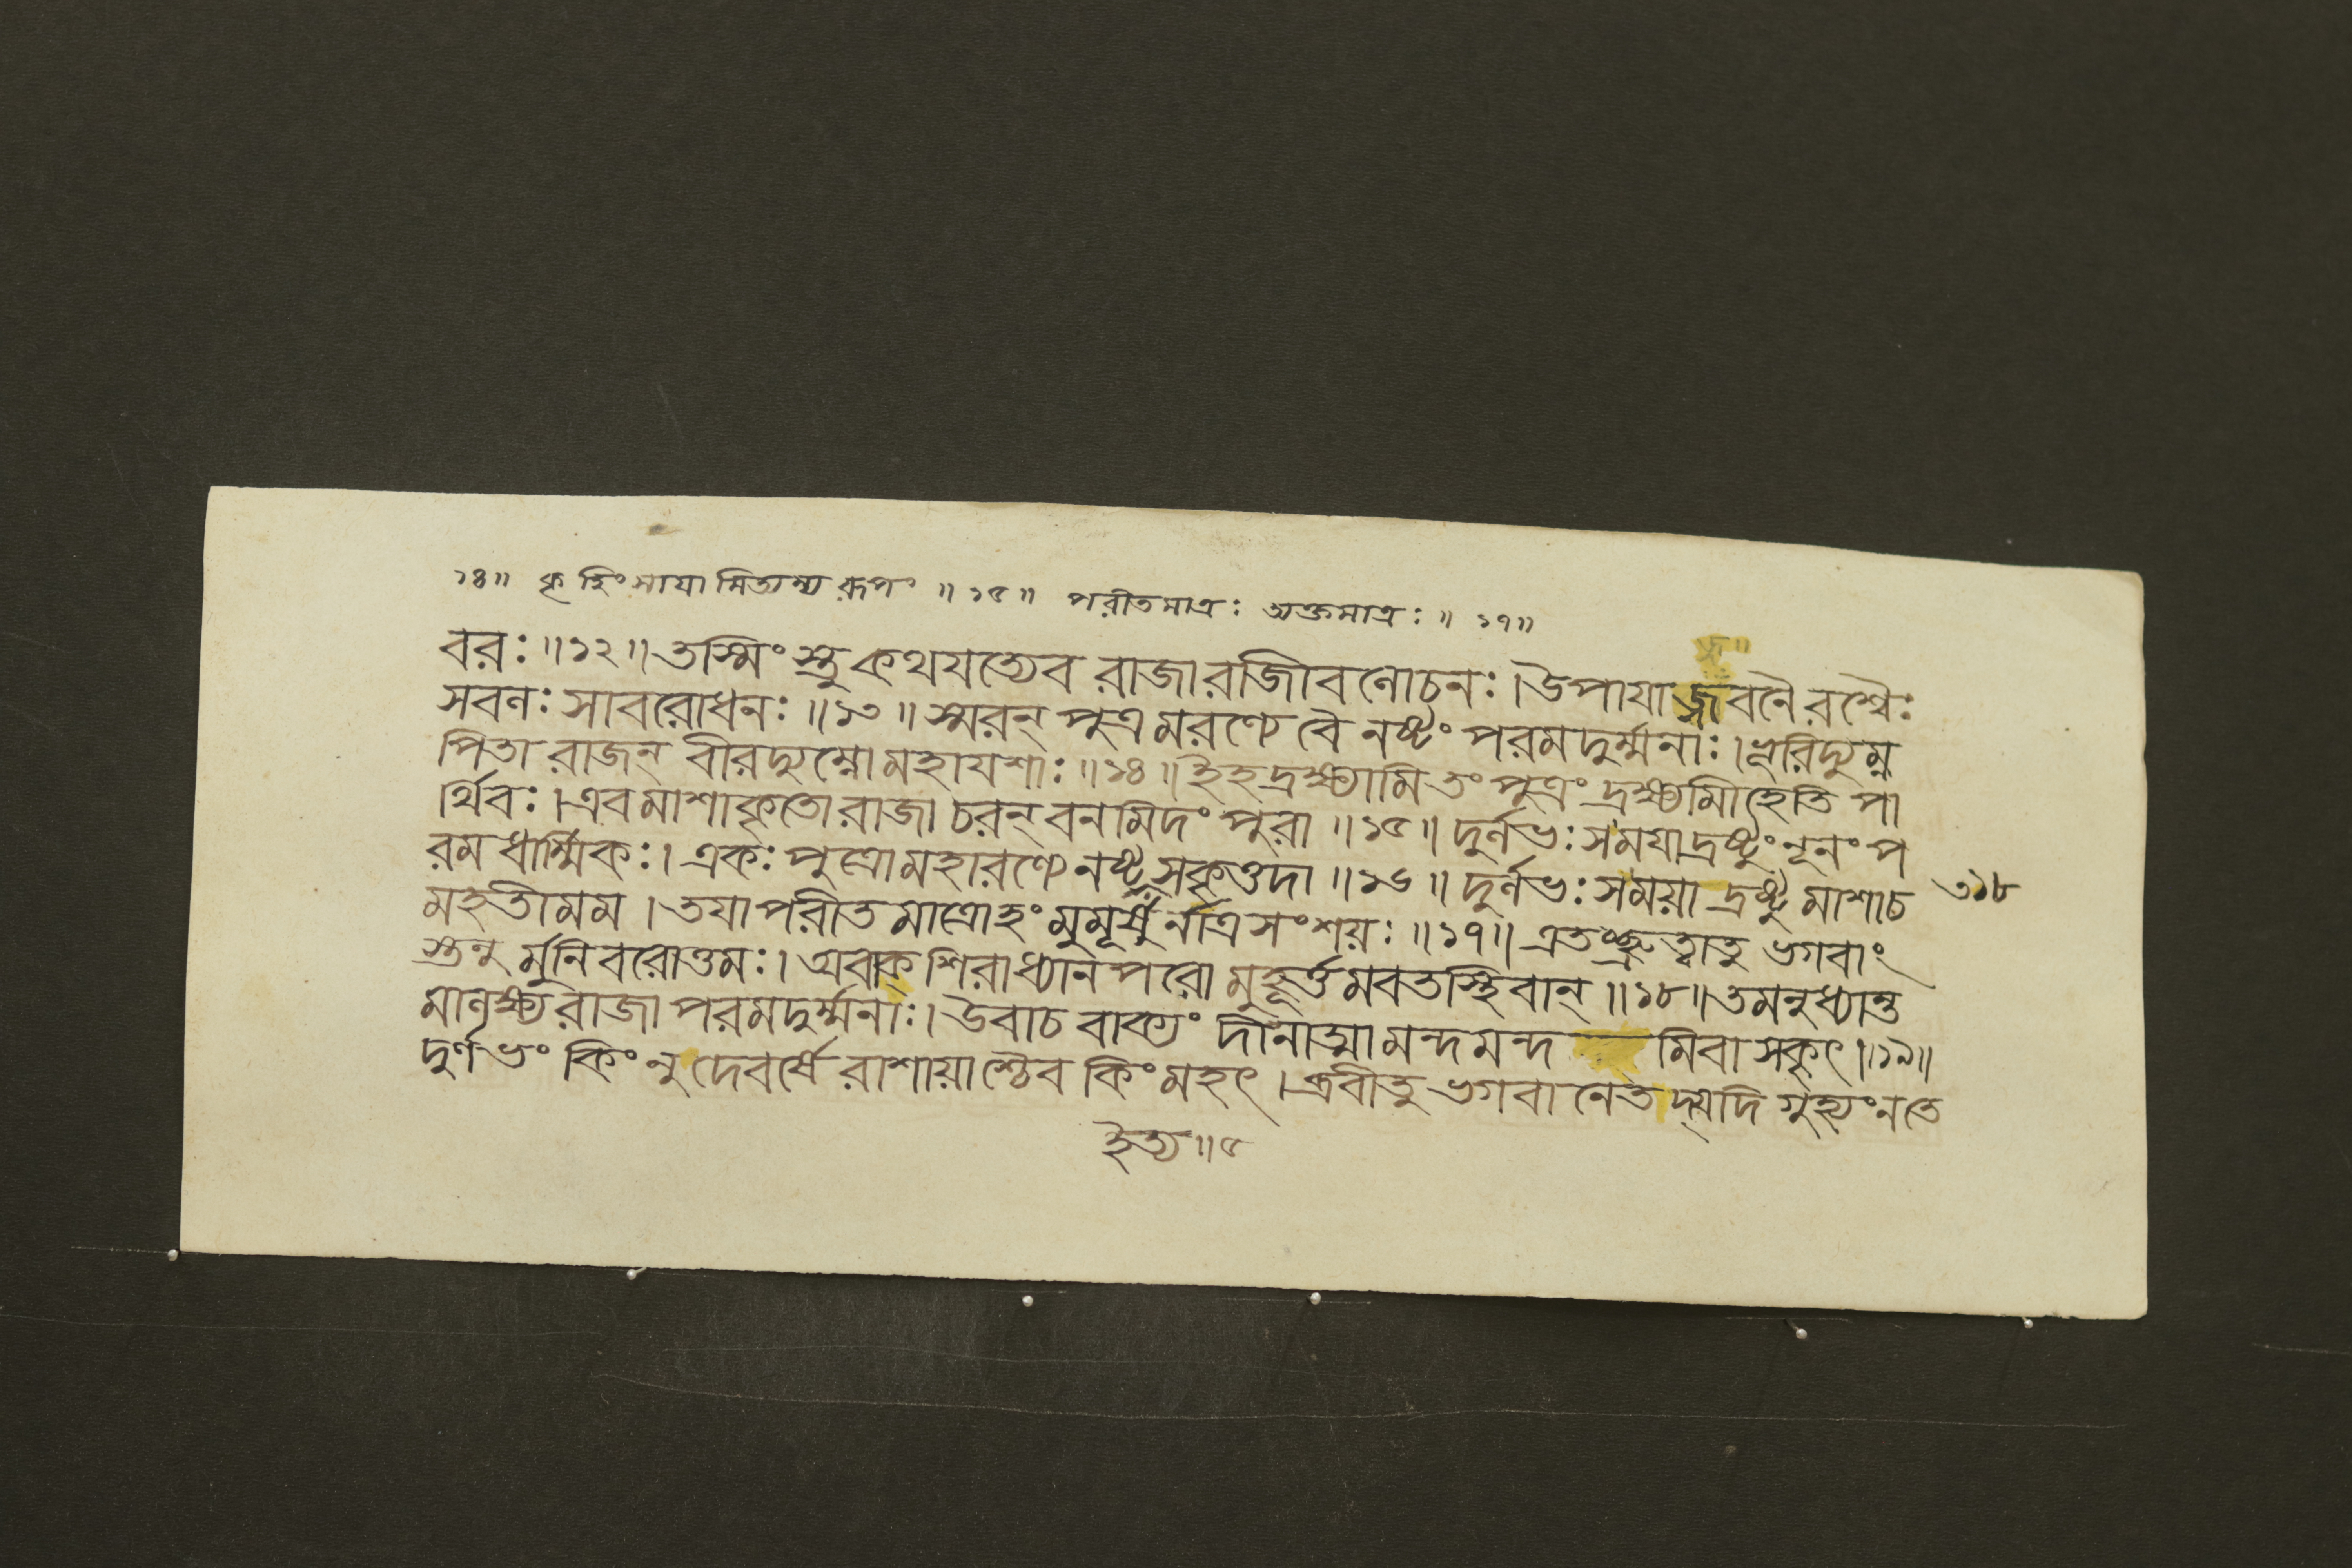 ১৪॥ কৃ হিং সাযা মিত্যন্য রূপং ॥ ১৫॥ পরীতমাত্রঃ অক্তমাত্রঃ ॥ ১৭॥
বরঃ ॥১২॥ তস্মিং স্তু কথযত্যেব রাজা রাজীবলোচনঃ । উপাযাজ্জবনৈরশ্বৈঃ
সবলঃ সাবরোধনঃ ॥১৩॥ স্মরন্ পুত্রমরণ্যে বৈ নষ্টং পরমদুর্ম্মনাঃ । ভূরিদ্যুম্ন
পিতা রাজন্ বীরদ্যুম্নো মহাযশাঃ ॥১৪॥ ইহ দ্রক্ষ্যামি তং পুত্রং দ্রক্ষ্যামীহেতি পা
র্থিবঃ । এবমাশাকৃতো রাজা চরন্ বনমিদং পুরা ॥১৫॥ দুর্লভঃ স মযা দ্রষ্টুং নূনং প
রমধার্ম্মিকঃ । একঃ পুত্রো মহারণ্যে নষ্ট ইত্যসকৃত্তদা ॥১৬॥ দুর্লভঃ স ময়া দ্রষ্টুমাশা চ
৩১৮
মহতী মম । তযা পরীতমাত্রোহং মুমূর্ষুর্নাত্র সংশয়ঃ ॥১৭॥ এতচ্ছ্রুত্বা তু ভগবাং
স্তনুর্মুনিবরোত্তমঃ । অবাক্ শিরা ধ্যানপরো মুহূর্ত্তমবতস্থিবান্ ॥১৮॥ তমনুধ্যান্ত
মালক্ষ্য রাজা পরমদুর্ম্মনাঃ । উবাচ বাক্যং দীনাত্মা মন্দমন্দ মিবাসকৃৎ ॥১৯॥
দুর্লভং কিং নু দেবর্ষে রাশায়াশ্চৈব কিং মহৎ । ব্রবীতু ভগবানেতদ্যদি গুহ্যং ন তে
ইত্য ॥৫